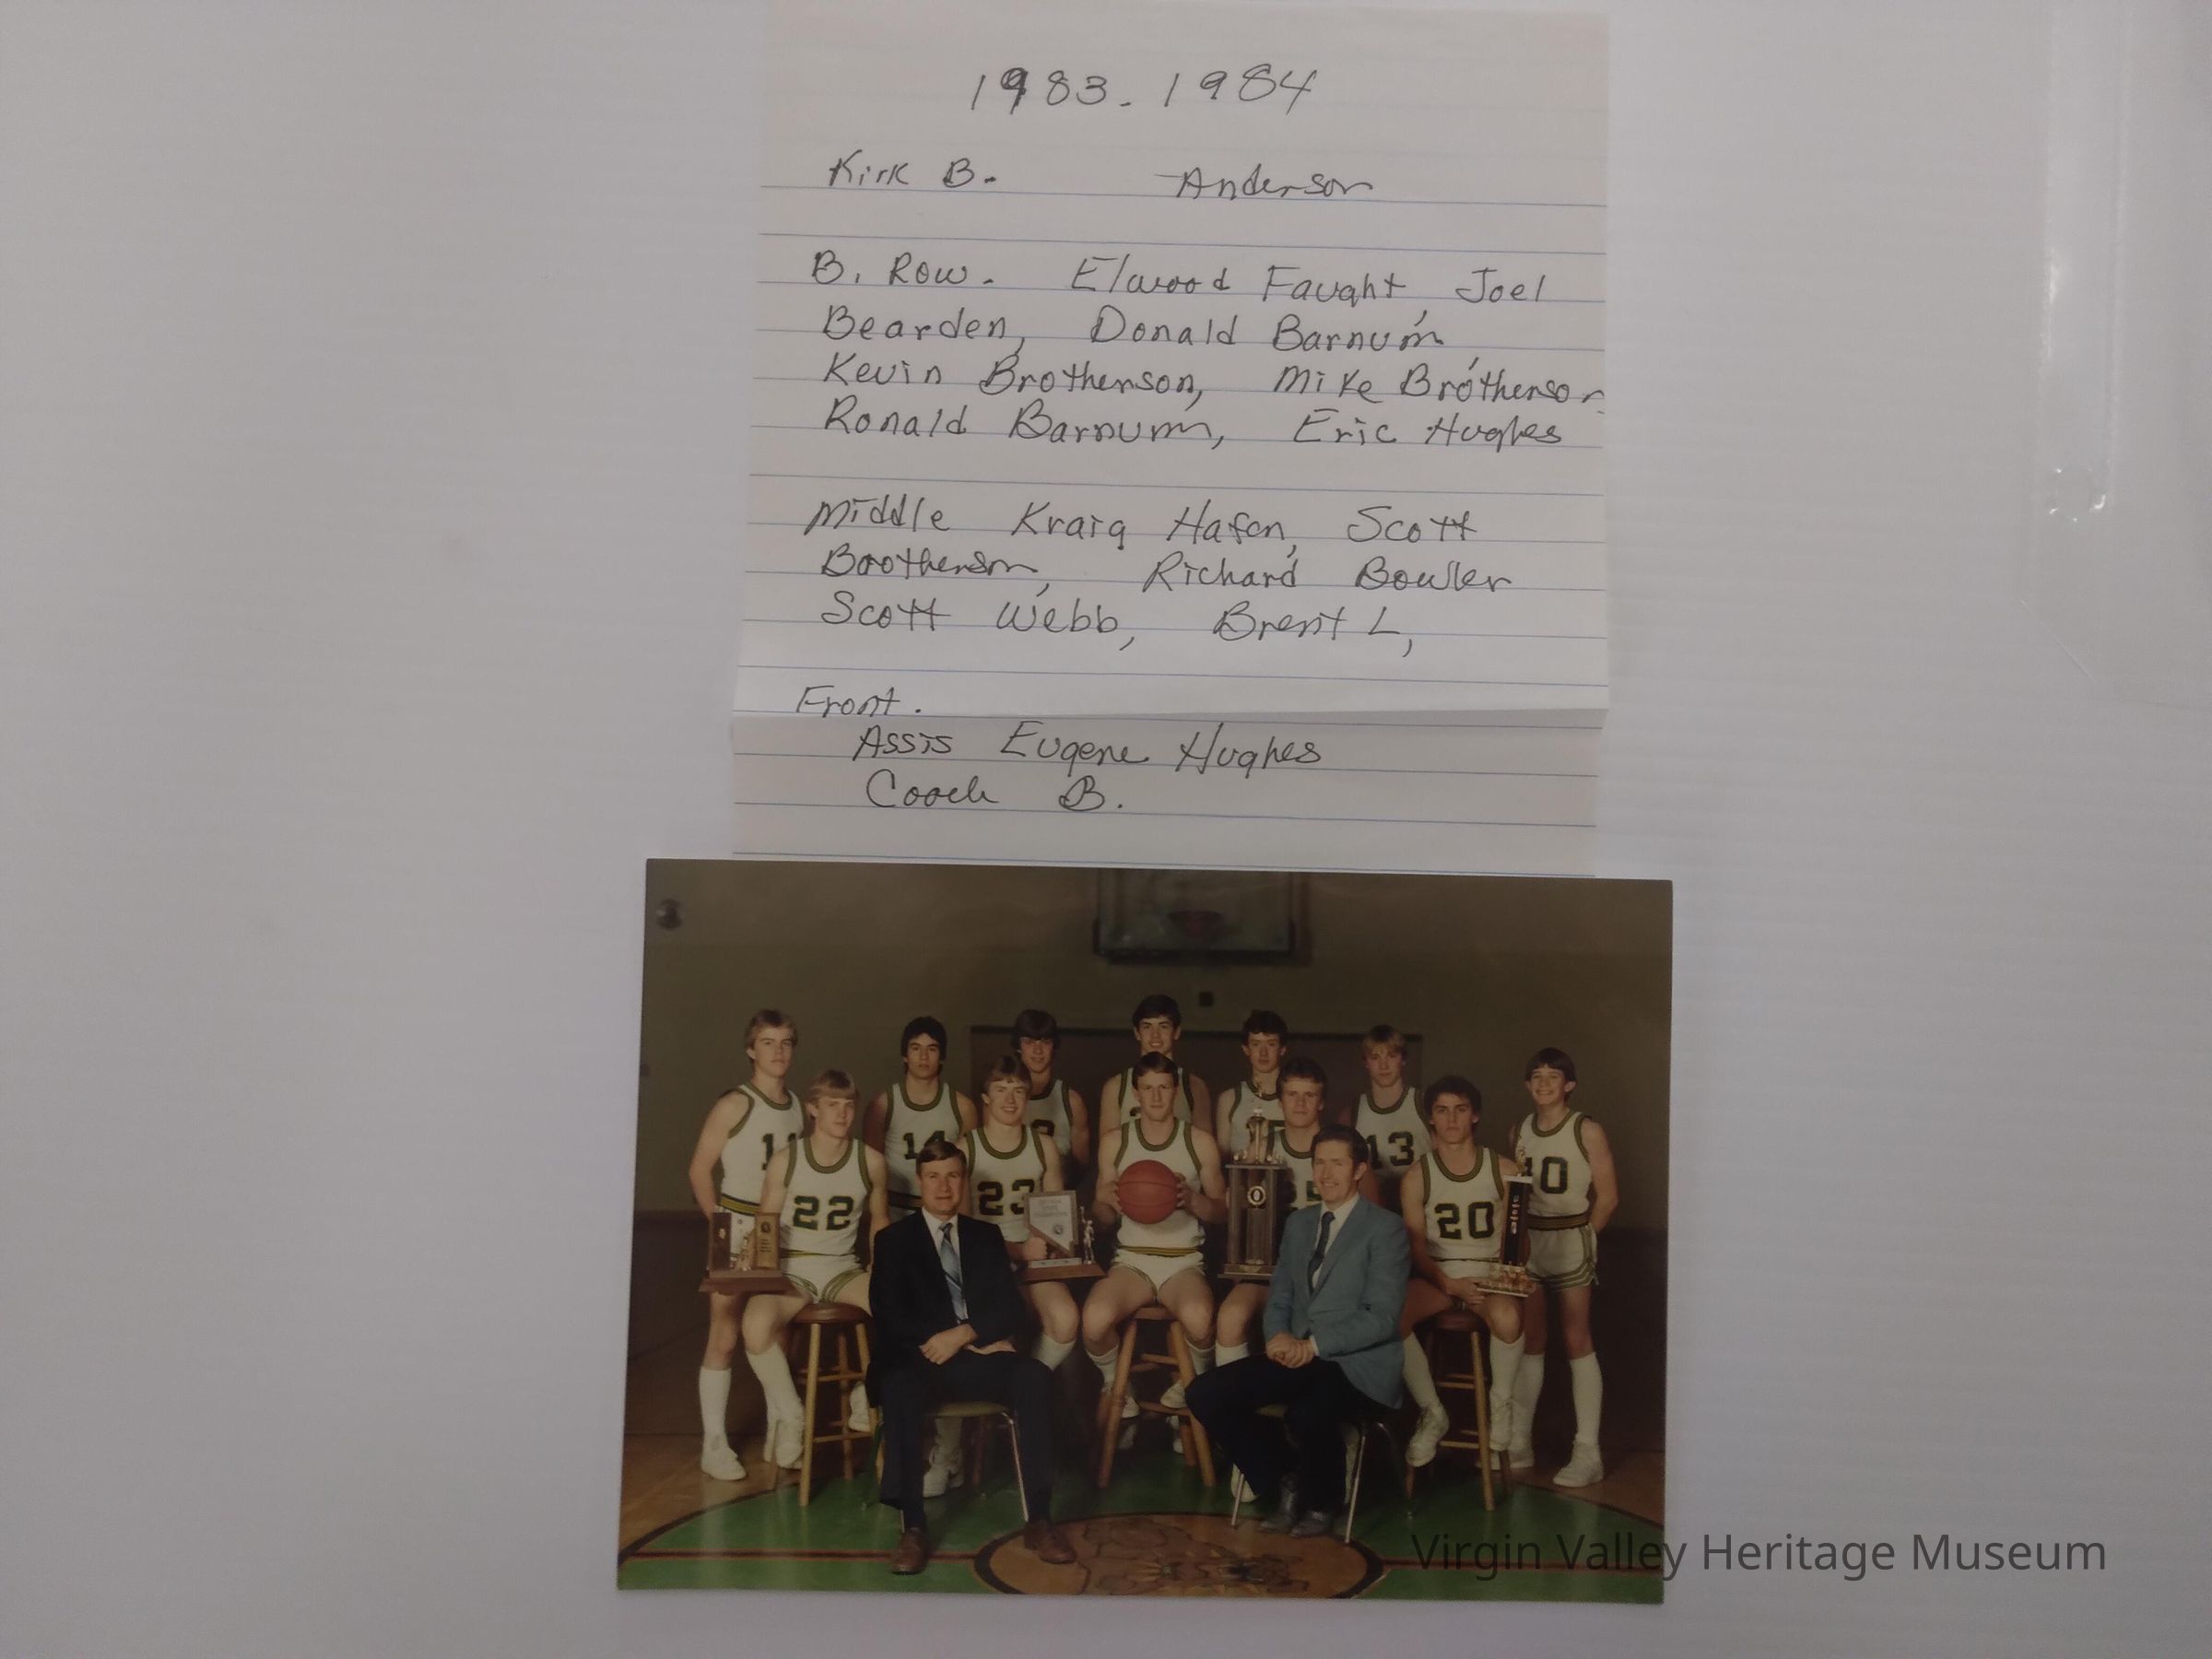 1983-1984
Kirk B. Anderson
B. Row. Elwood Faught, Joel
Bearden, Donald Barnum,
Kevin Brotherson, Mike Brotherson
Ronald Barnum, Eric Hughes
Middle Kraig Hafen, Scott
Brotherson, Richard Bowler
Scott Webb, Brent L,
Front.
Assis Eugene Hughes
Coach B.
11
14
13
22
23
20
10
Virgin Valley Heritage Museum